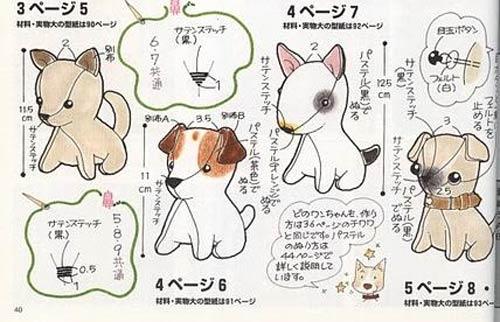 3 ページ 5
材料・実物大の型紙は90ページ
2
別布
11.5cm
サテンステッチ
サテンステッチ
(黒)
6・7共通
1
1
4 ページ 7
材料・実物大の型紙は92ページ
2
サテンステッチ
パステル(黒)でぬる
12.5cm
パステル(オレンジ)でぬる
目玉ボタン
フェルト
(白)
フェルトを止める
サテンステッチ
(黒)
3
2.5
パステル(黒)でぬる
別布A
3.5
別布B
パステル(茶色)でぬる
11cm
サテンステッチ
4 ページ 6
材料・実物大の型紙は91ページ
サテンステッチ
(黒)
5・8・9共通
0.5
1
どのワンちゃんも、作り
方は36ページのチワワ
と同じです。パステル
のぬり方は
44ページで
詳しく説明して
います。
5 ページ 8・
材料・実物大の型紙は93ペー
40